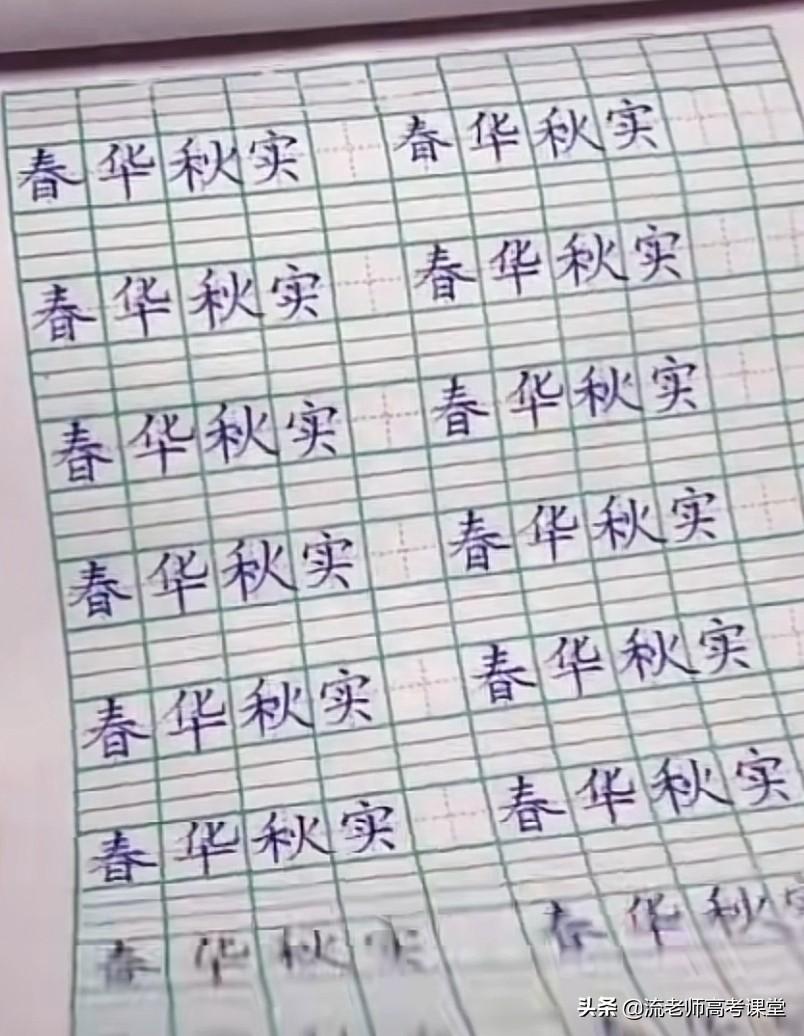 春华秋实 春华秋实
春华秋实 春华秋实
春华秋实 春华秋实
春华秋实 春华秋实
春华秋实 春华秋实
春华秋实 春华秋实
春华秋实 春华秋
头条 @流老师高考课堂